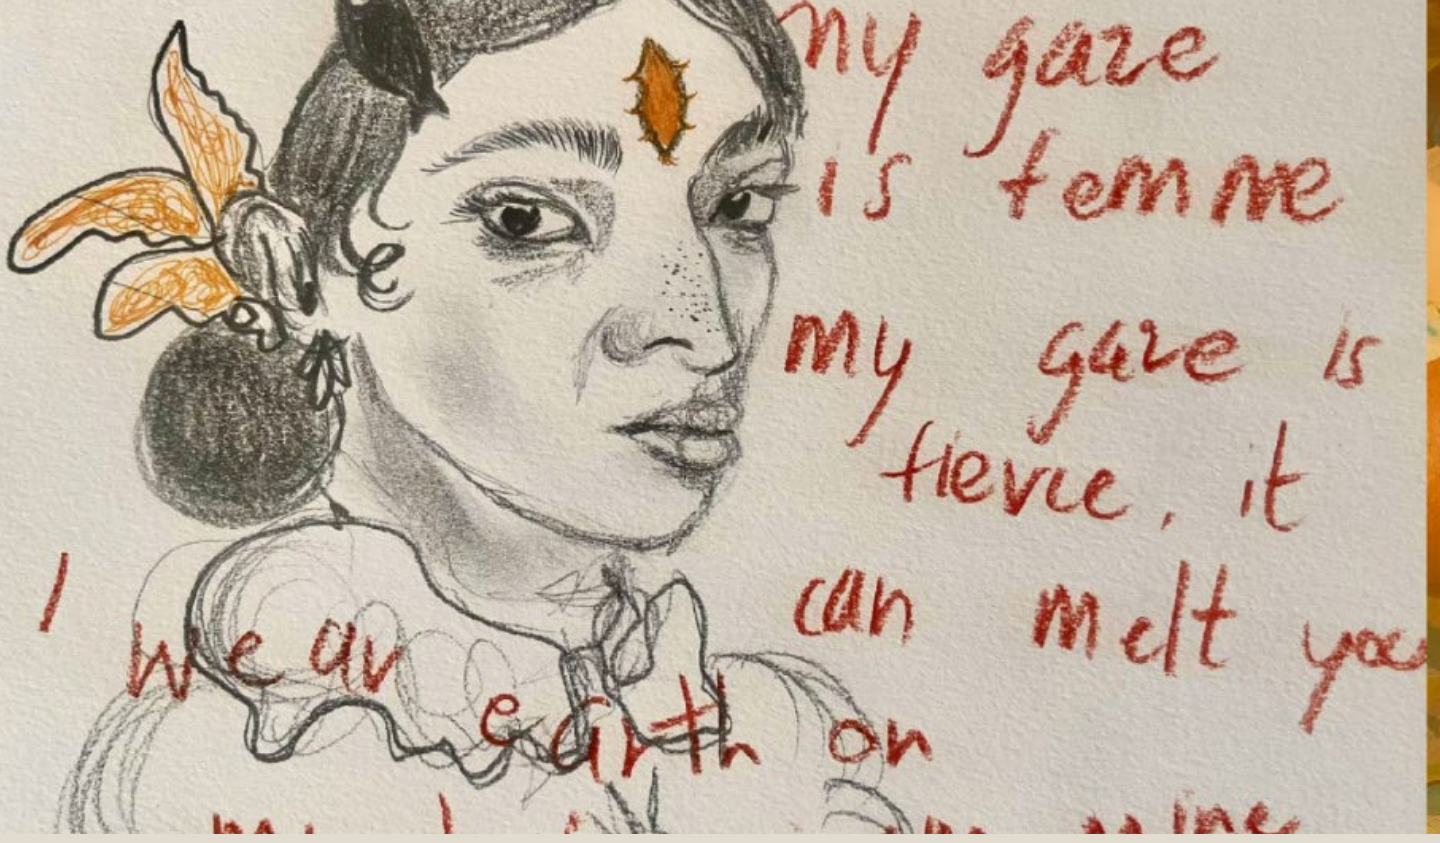 my gaze
is femme
my gaze is
fierce, it
can melt you
I wear earth on